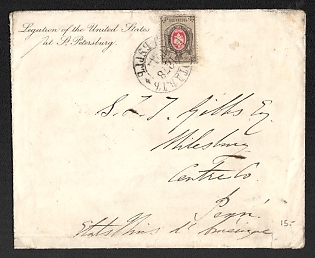 Legation of the United States
at St. Petersburg.
S. T. Gibbs Esq.
Milesburg
Centre Co
Penn.
Etats Unis d'Amerique
15-